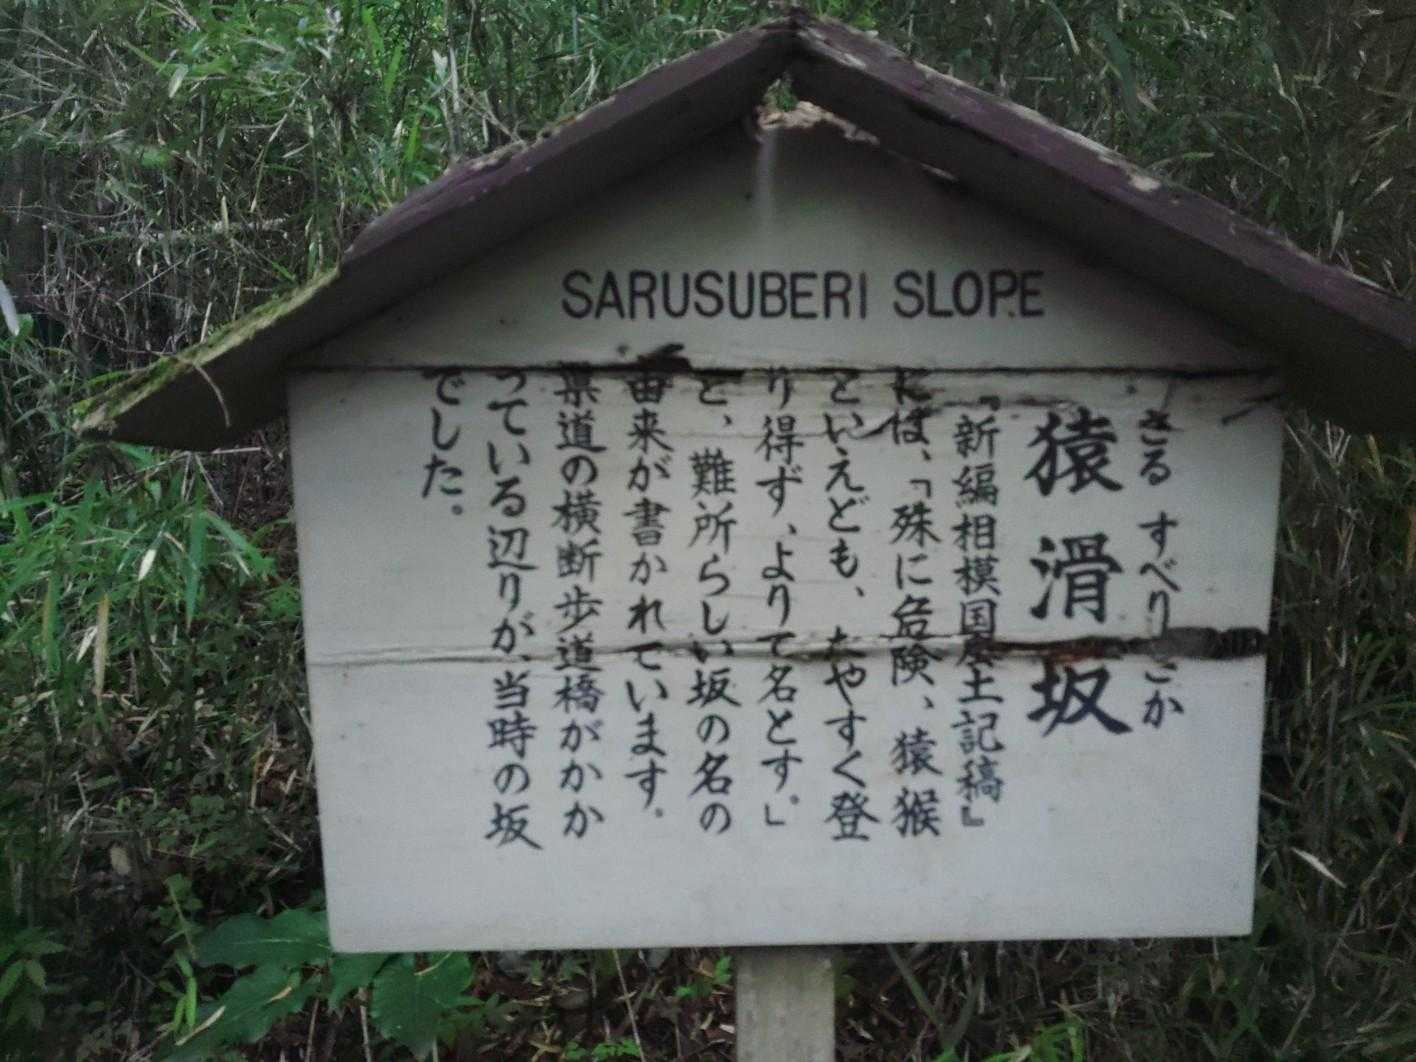 SARUSUBERI SLOPE
さる すべり ざか
猿滑坂
『新編相模国風土記稿』
には、「殊に危険、猿猴
といえども、たやすく登
り得ず、よりて名とす。」
と、難所らしい坂の名の
由来が書かれています。
県道の横断歩道橋がかか
っている辺りが、当時の坂
でした。